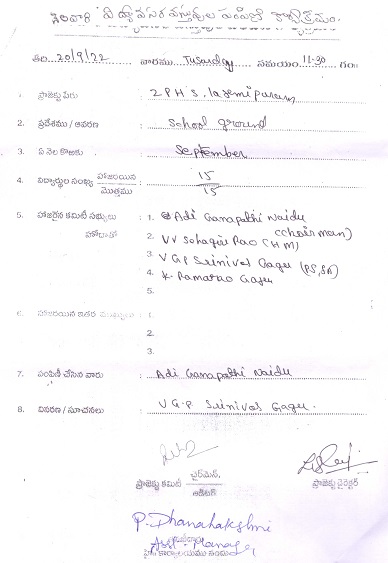 నెలవారి విద్యావసర వస్తువుల పంపిణీ కార్యక్రమం.
తేది 20/9/22 వారము Tuesday సమయం 11-30 గం॥
1. ప్రాజెక్టు పేరు : ZPHS, laxmipuram
2. ప్రదేశము / ఆవరణ : School ground
3. ఏ నెల కొరకు : September
4. విద్యార్థుల సంఖ్య హాజరయిన 15
మొత్తము 15
5. హాజరైన కమిటీ సభ్యులు : 1. Adi Ganapathi Naidu
హోదాతో (chairman)
2. VV Rao (HM)
3. V G P Srinivas Gagu (PS, SA)
4. K. Ramarao Gagu
5.
6. హాజరయిన ఇతర : 1.
2.
3.
7. పంపిణీ చేసిన వారు : Adi Ganapathi Naidu
8. వివరణ / సూచనలు : V G P Srinivas Gagu.
ప్రాజెక్టు కమిటీ చైర్మన్,
ఆడిటర్
ప్రాజెక్టు డైరెక్టర్
P. Dhanalakshmi
Asst. Manager